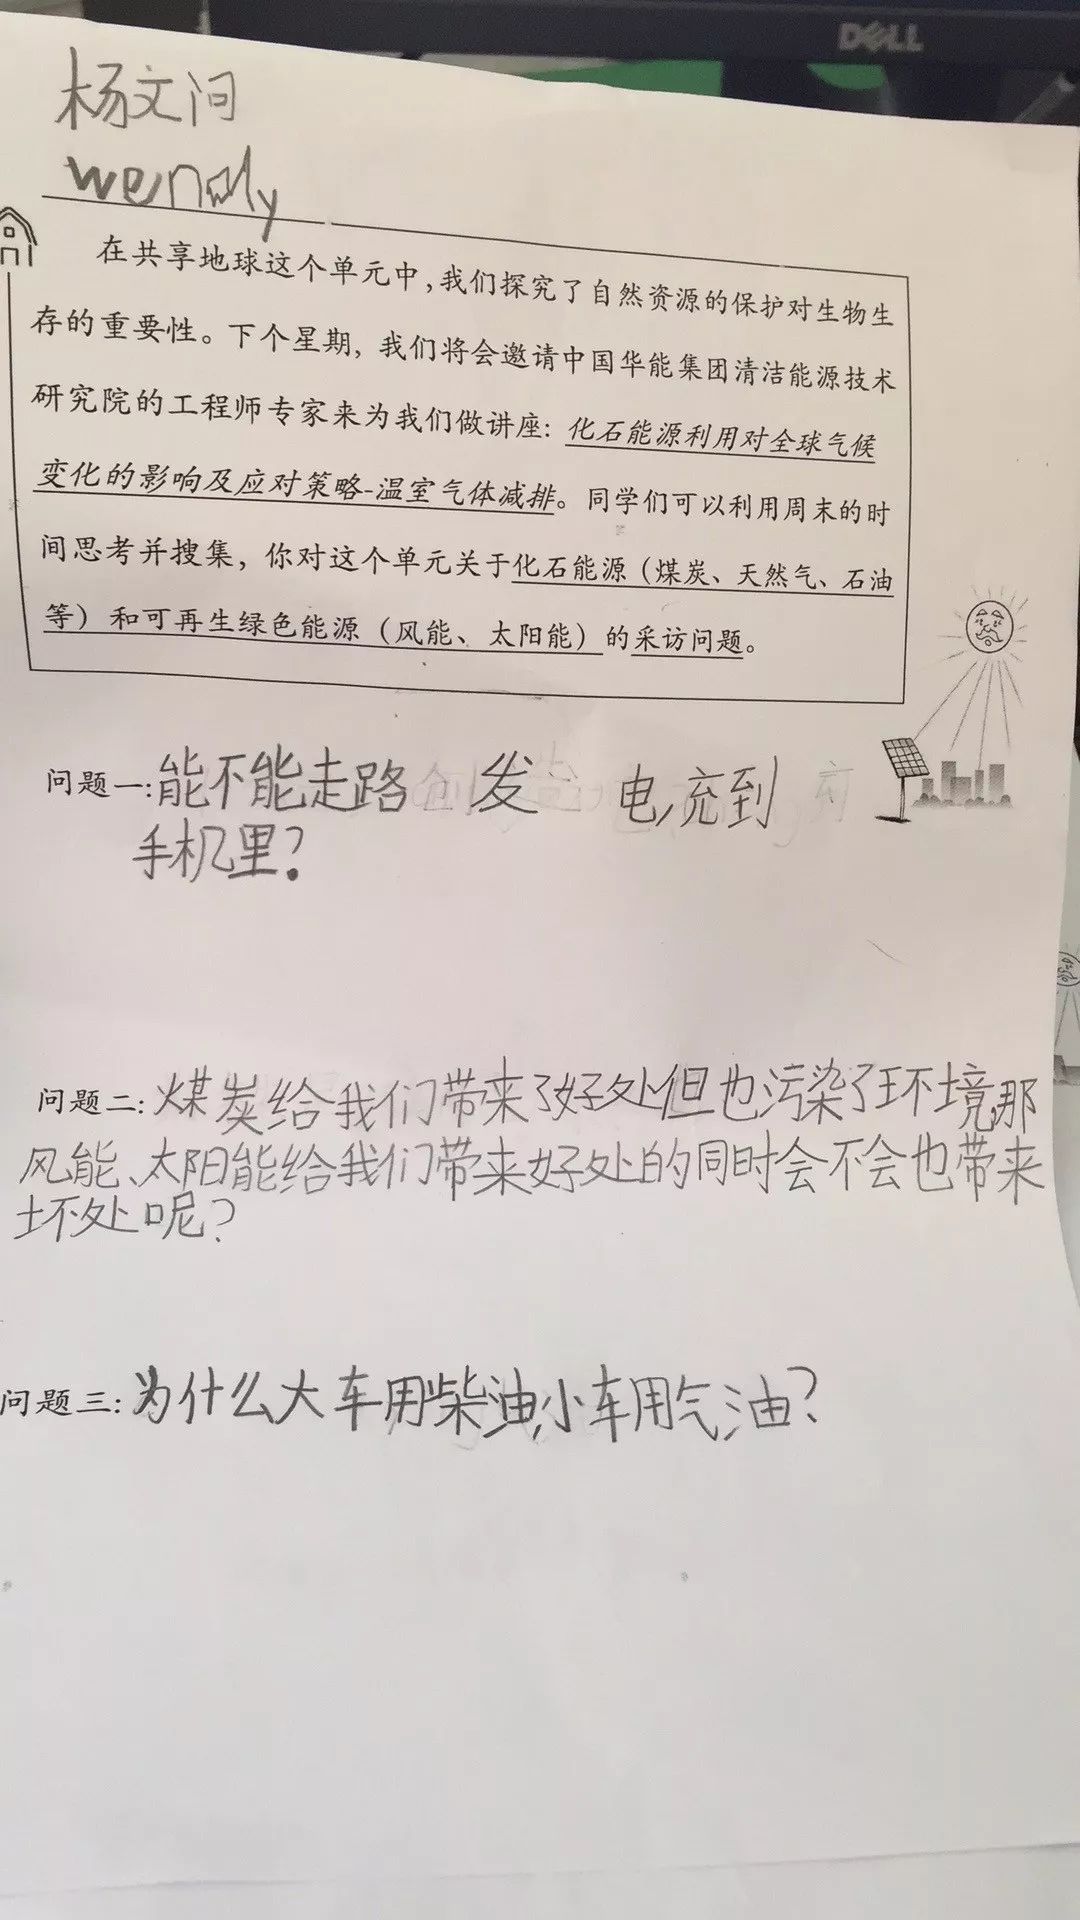 DELL
杨文问
wendy
在共享地球这个单元中，我们探究了自然资源的保护对生物生
存的重要性。下个星期，我们将会邀请中国华能集团清洁能源技术
研究院的工程师专家来为我们做讲座：化石能源利用对全球气候
变化的影响及应对策略-温室气体减排。同学们可以利用周末的时
间思考并搜集，你对这个单元关于化石能源（煤炭、天然气、石油
等）和可再生绿色能源（风能、太阳能）的采访问题。
问题一:能不能走路发电,充到
手机里?
问题二:煤炭给我们带来了好处但也污染了环境,那
风能、太阳能给我们带来好处的同时会不会也带来
坏处呢?
问题三:为什么大车用柴油,小车用气油?